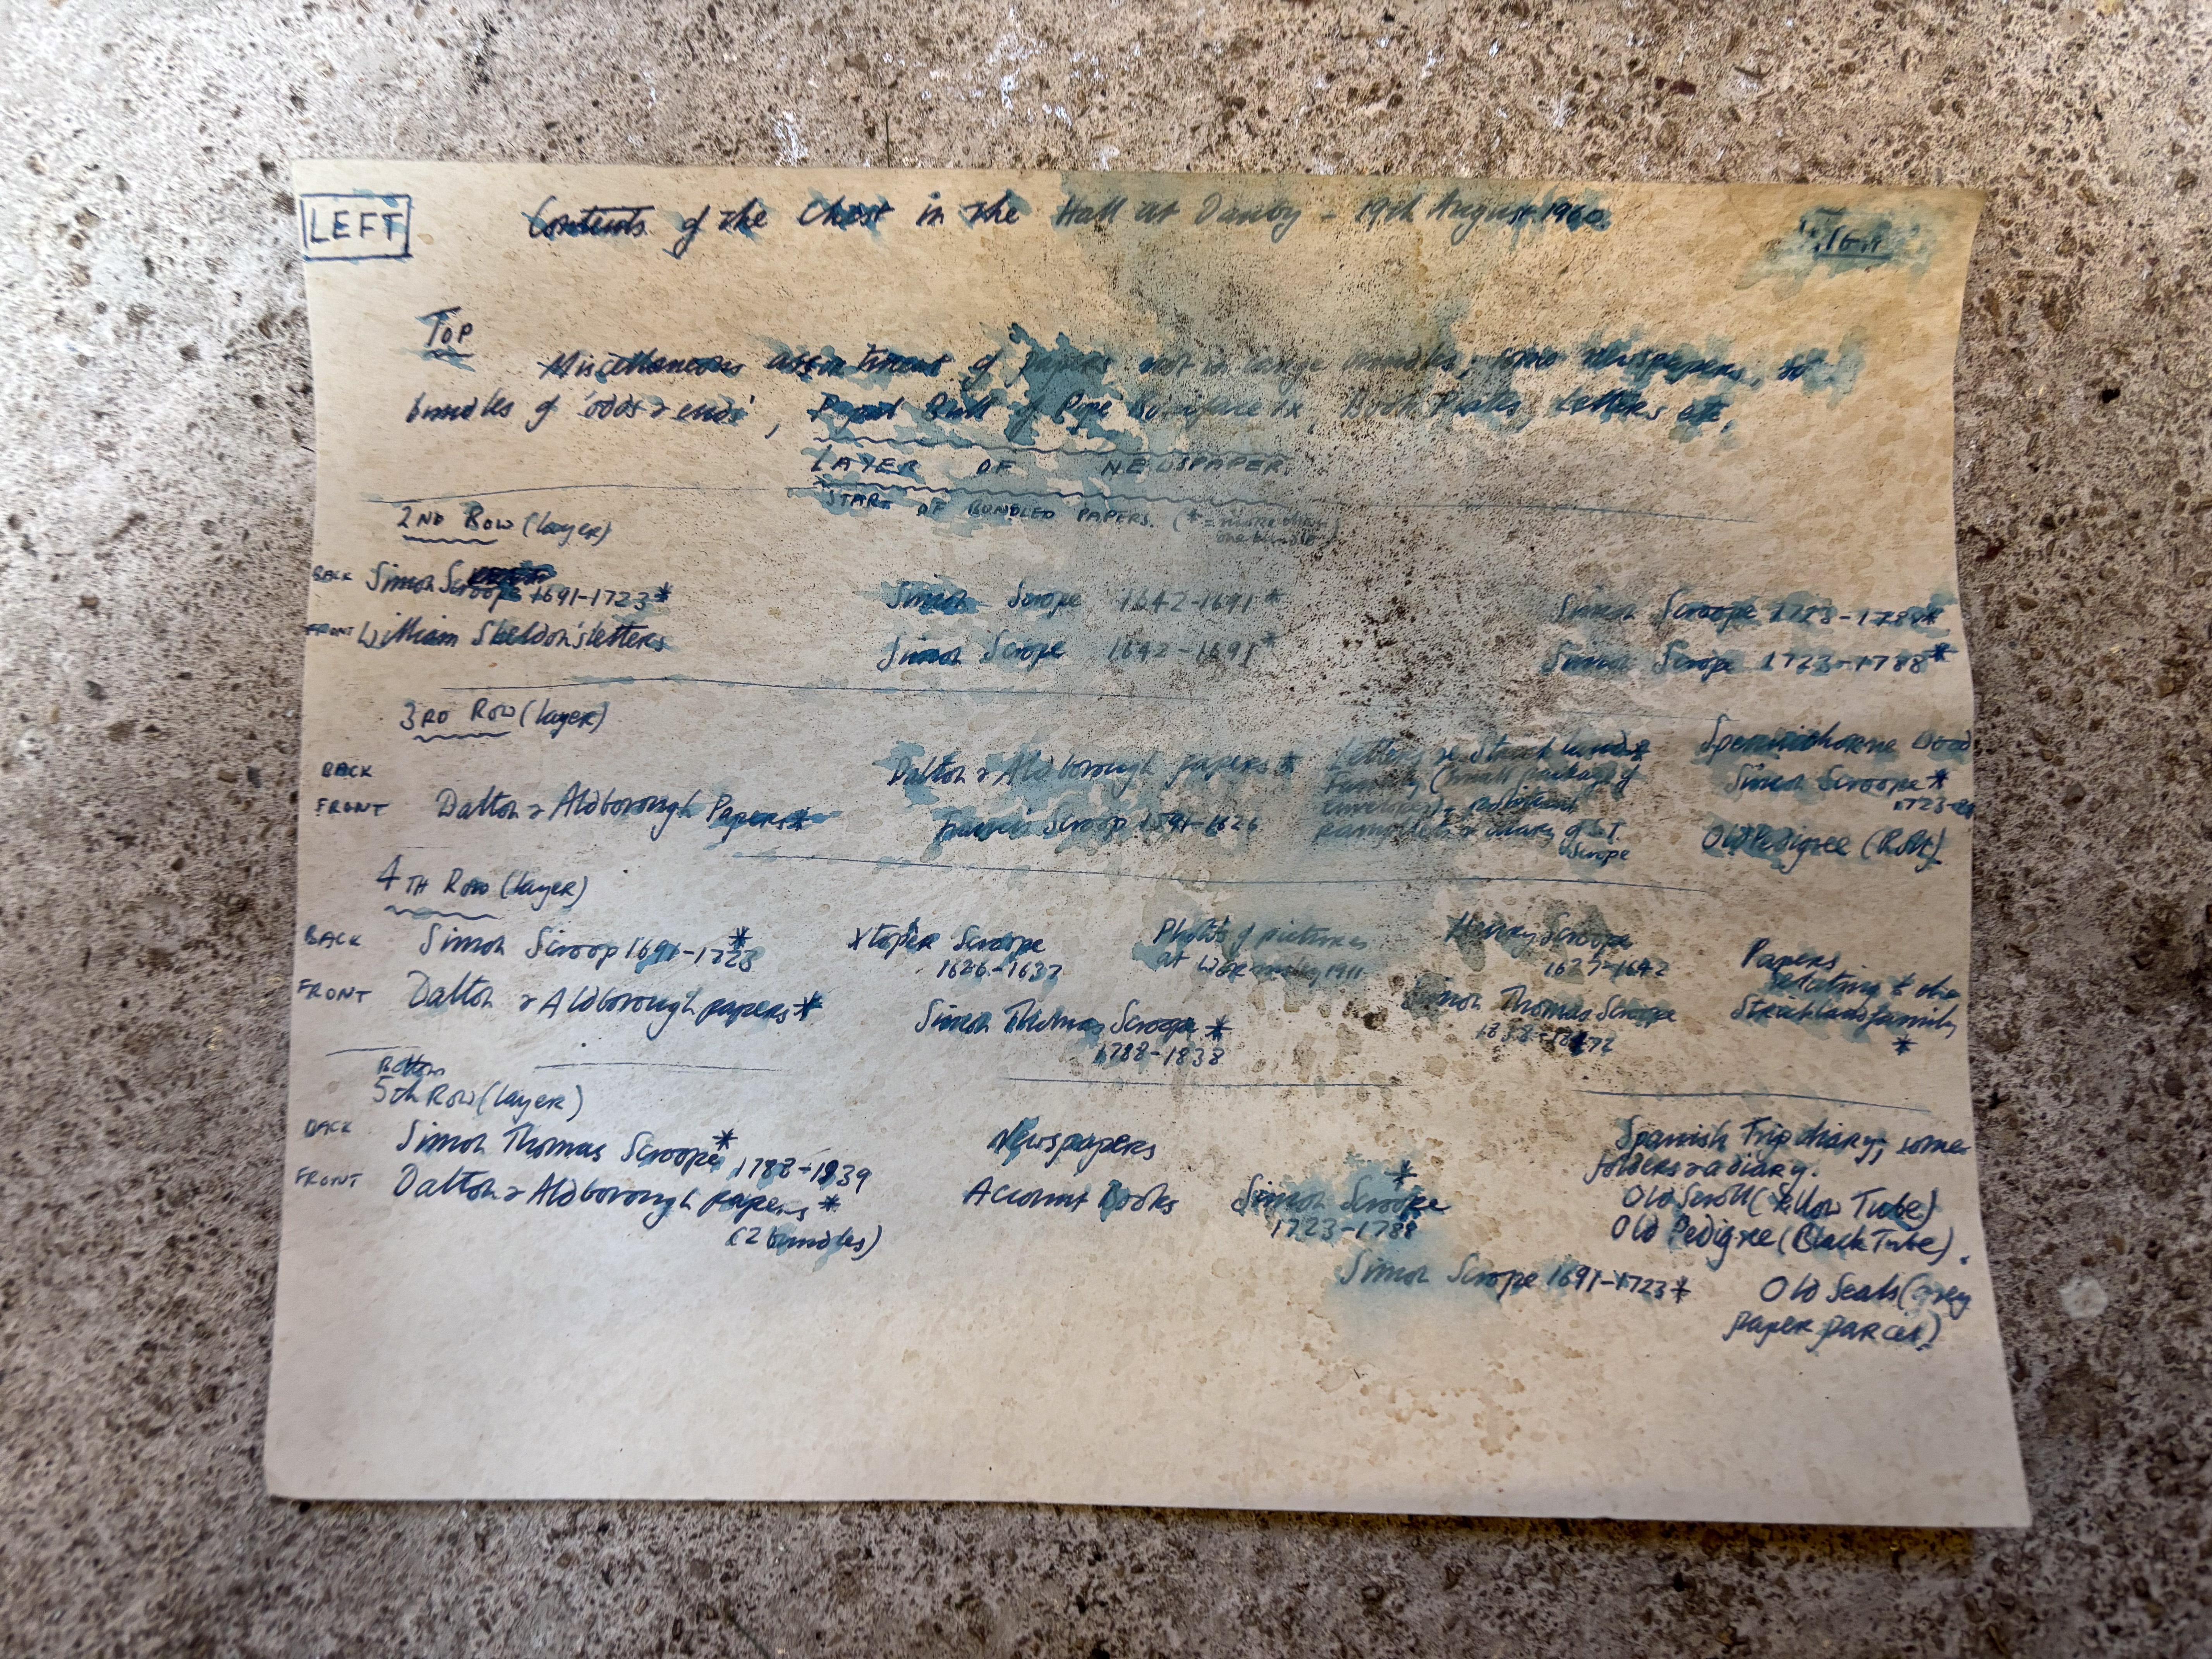 LEFT
Contents of the Chest in the Hall at Danby - 19th August 1960.
TOP
Miscellaneous assortment of papers not in large bundles; some newspapers,
bundles of 'odds & ends', Papal Bull of Pope Boniface IX, Book Plates, Letters etc.
LAYER OF NEWSPAPER.
START OF BUNDLED PAPERS. (* = more than
one bundle)
2ND ROW (layer)
BACK Simon Scroope 1691-1723* Simon Scrope 1642-1691* Simon Scroope 1723-1788*
FRONT William Sheldon's letters Simon Scrope 1642-1691* Simon Scrope 1723-1788*
3RD ROW (layer)
BACK Dalton & Aldborough papers* Letters re Strickland* Spennithorne Wood
Family (small package of Simon Scroope*
envelopes), political 1723-88
FRONT Dalton & Aldborough Papers* Francis Scroop 1591-1626 pamphlets & diary of S.T. Old Pedigree (Roll).
Scrope
4TH ROW (layer)
BACK Simon Scroop 1691-1723* Xtopher Scroope Photos of pictures Henry Scroope Papers
1626-1637 at 1911 1637-1642 relating to the
FRONT Dalton & Aldborough papers* Simon Thomas Scroope* Simon Thomas Scrope Strickland family
1788-1838 1838-1872 *
Bottom
5th Row (layer)
BACK Simon Thomas Scroope* 1788-1839 Newspapers Spanish Trip diary; some
folders & a diary.
FRONT Dalton & Aldborough papers* Account Books Simon Scroope* Old Scroll (Yellow Tube)
(2 bundles) 1723-1788 Old Pedigree (Black Tube).
Simon Scrope 1691-1723* Old Seals (grey
paper parcel)